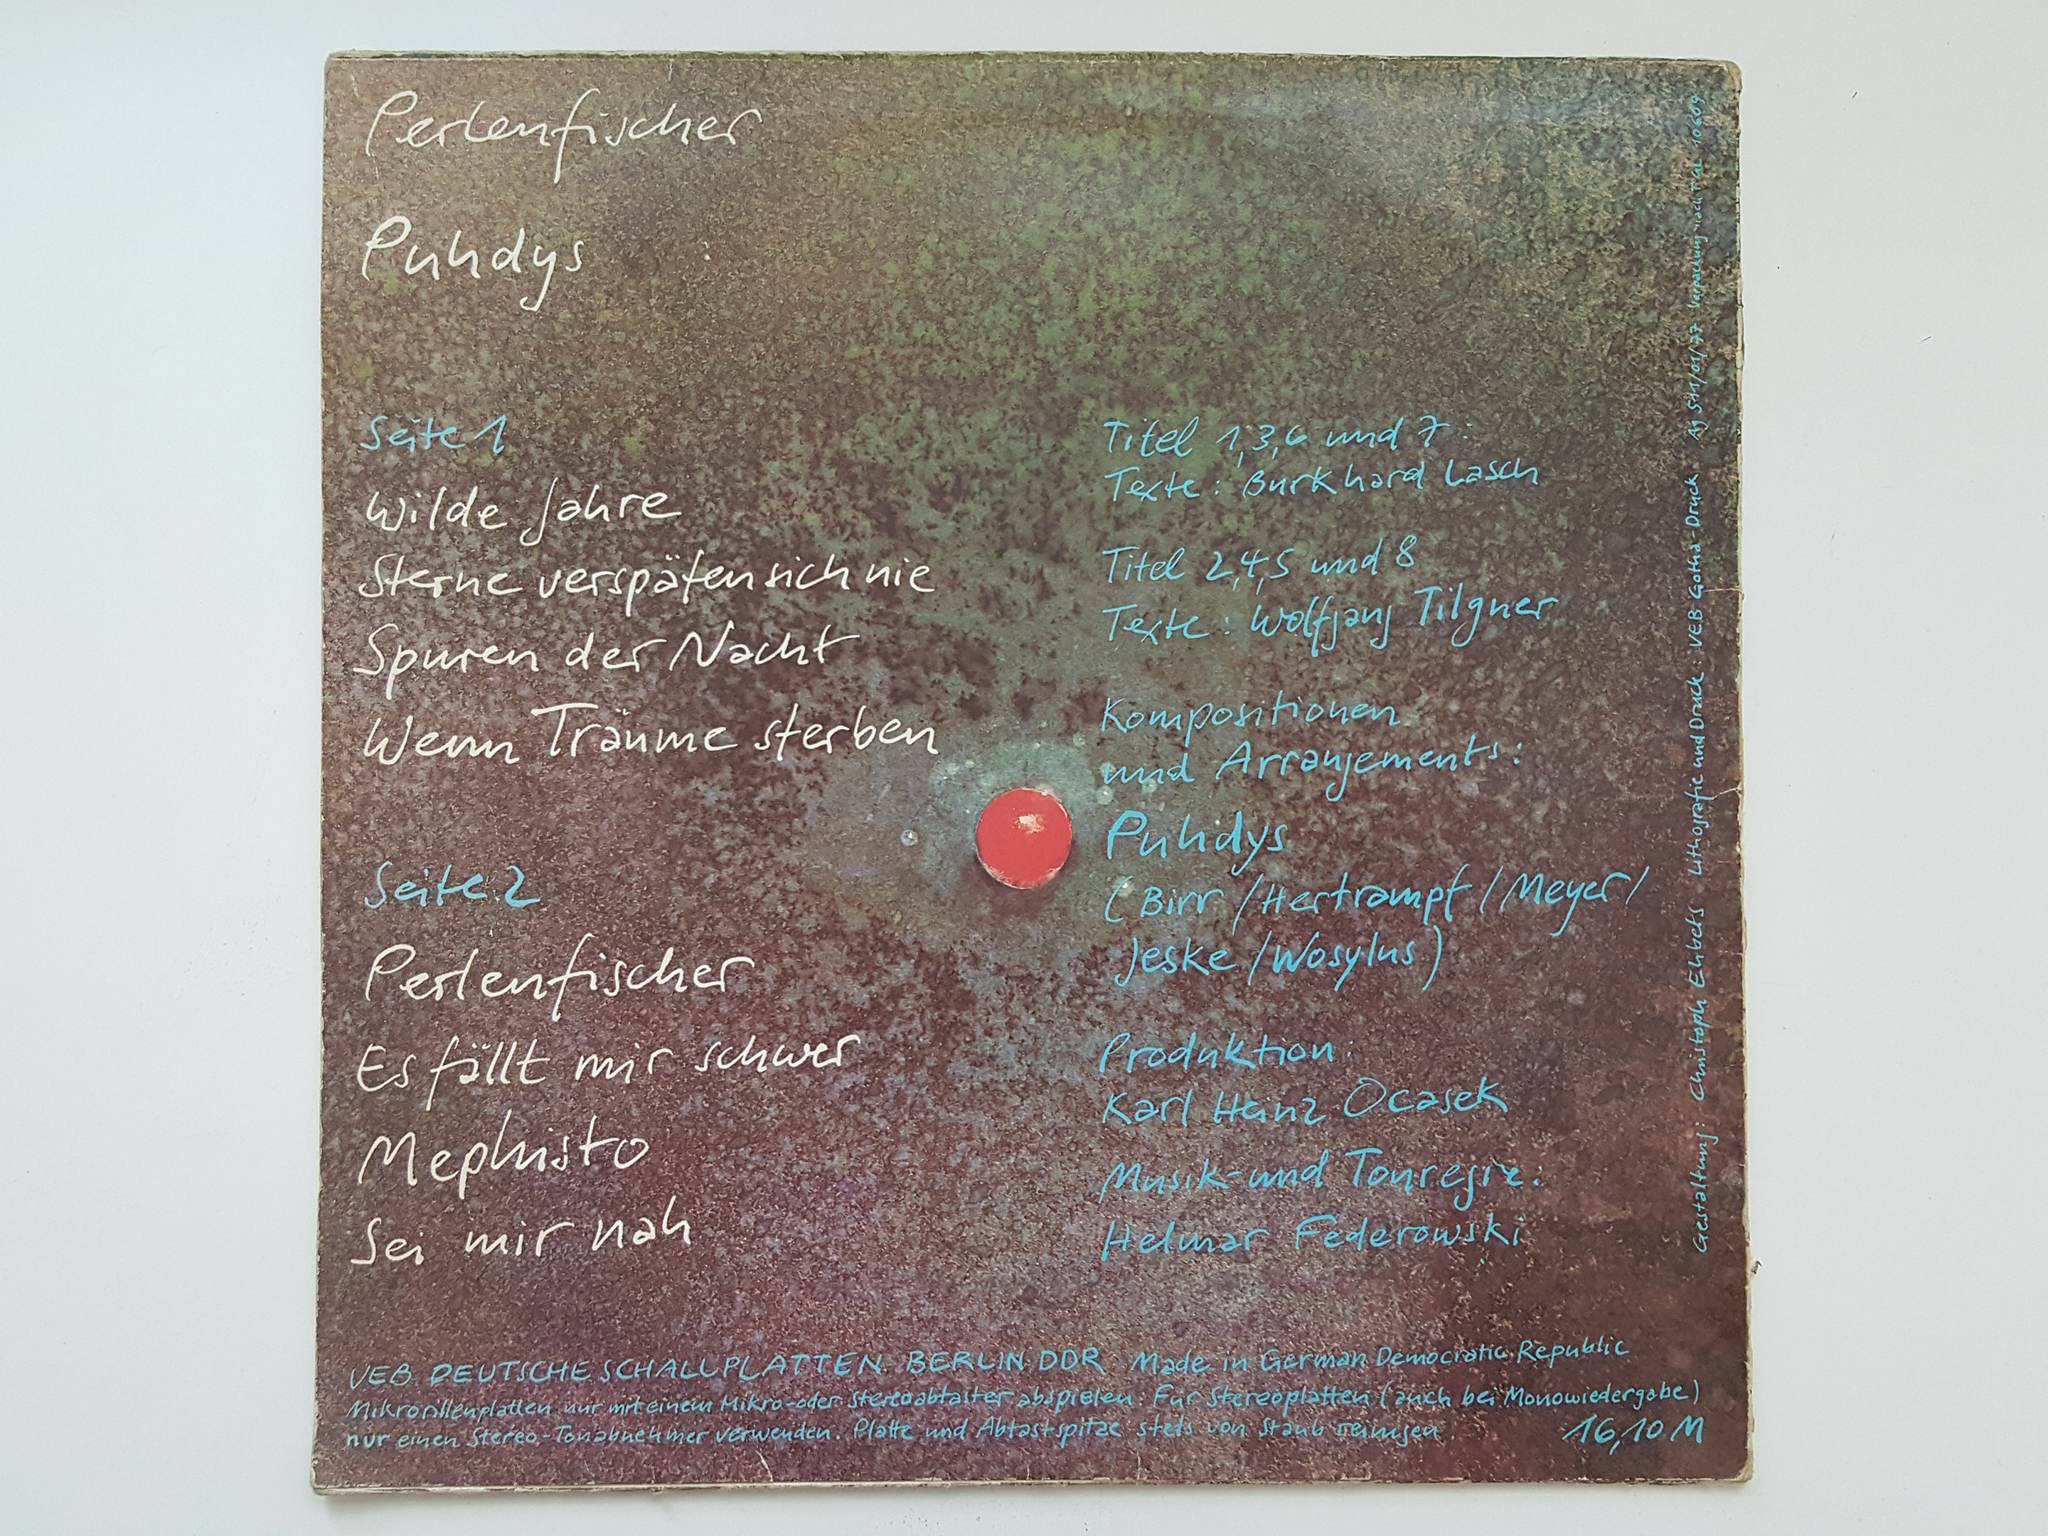 Perlenfischer
Puhdys
Seite 1
Wilde Jahre
Sterne verspäten sich nie
Spuren der Nacht
Wenn Träume sterben
Seite 2
Perlenfischer
Es fällt mir schwer
Mephisto
Sei mir nah
Titel 1,3,6 und 7
Texte: Burkhard Lasch
Titel 2,4,5 und 8
Texte: Wolfgang Tilgner
Kompositionen
und Arrangements:
Puhdys
(Birr/Hertrampf/Meyer/
Jeske/Wosylus)
Produktion
Karl Heinz Ocasek
Musik- und Tonregie:
Helmar Federowski
VEB DEUTSCHE SCHALLPLATTEN BERLIN DDR Made in German Democratic Republic
Mikrorillenplatten nur mit einem Mikro- oder Stereoabtaster abspielen. Für Stereoplatten (auch bei Monowiedergabe)
nur einen Stereo-Tonabnehmer verwenden. Platte und Abtastspitze stets von Staub reinigen
16,10 M
Gestaltung: Christoph Ehbets Lithografie und Druck: VEB Gotha-Druck Ag 511/01/77 Verpackung nach TGL 10609